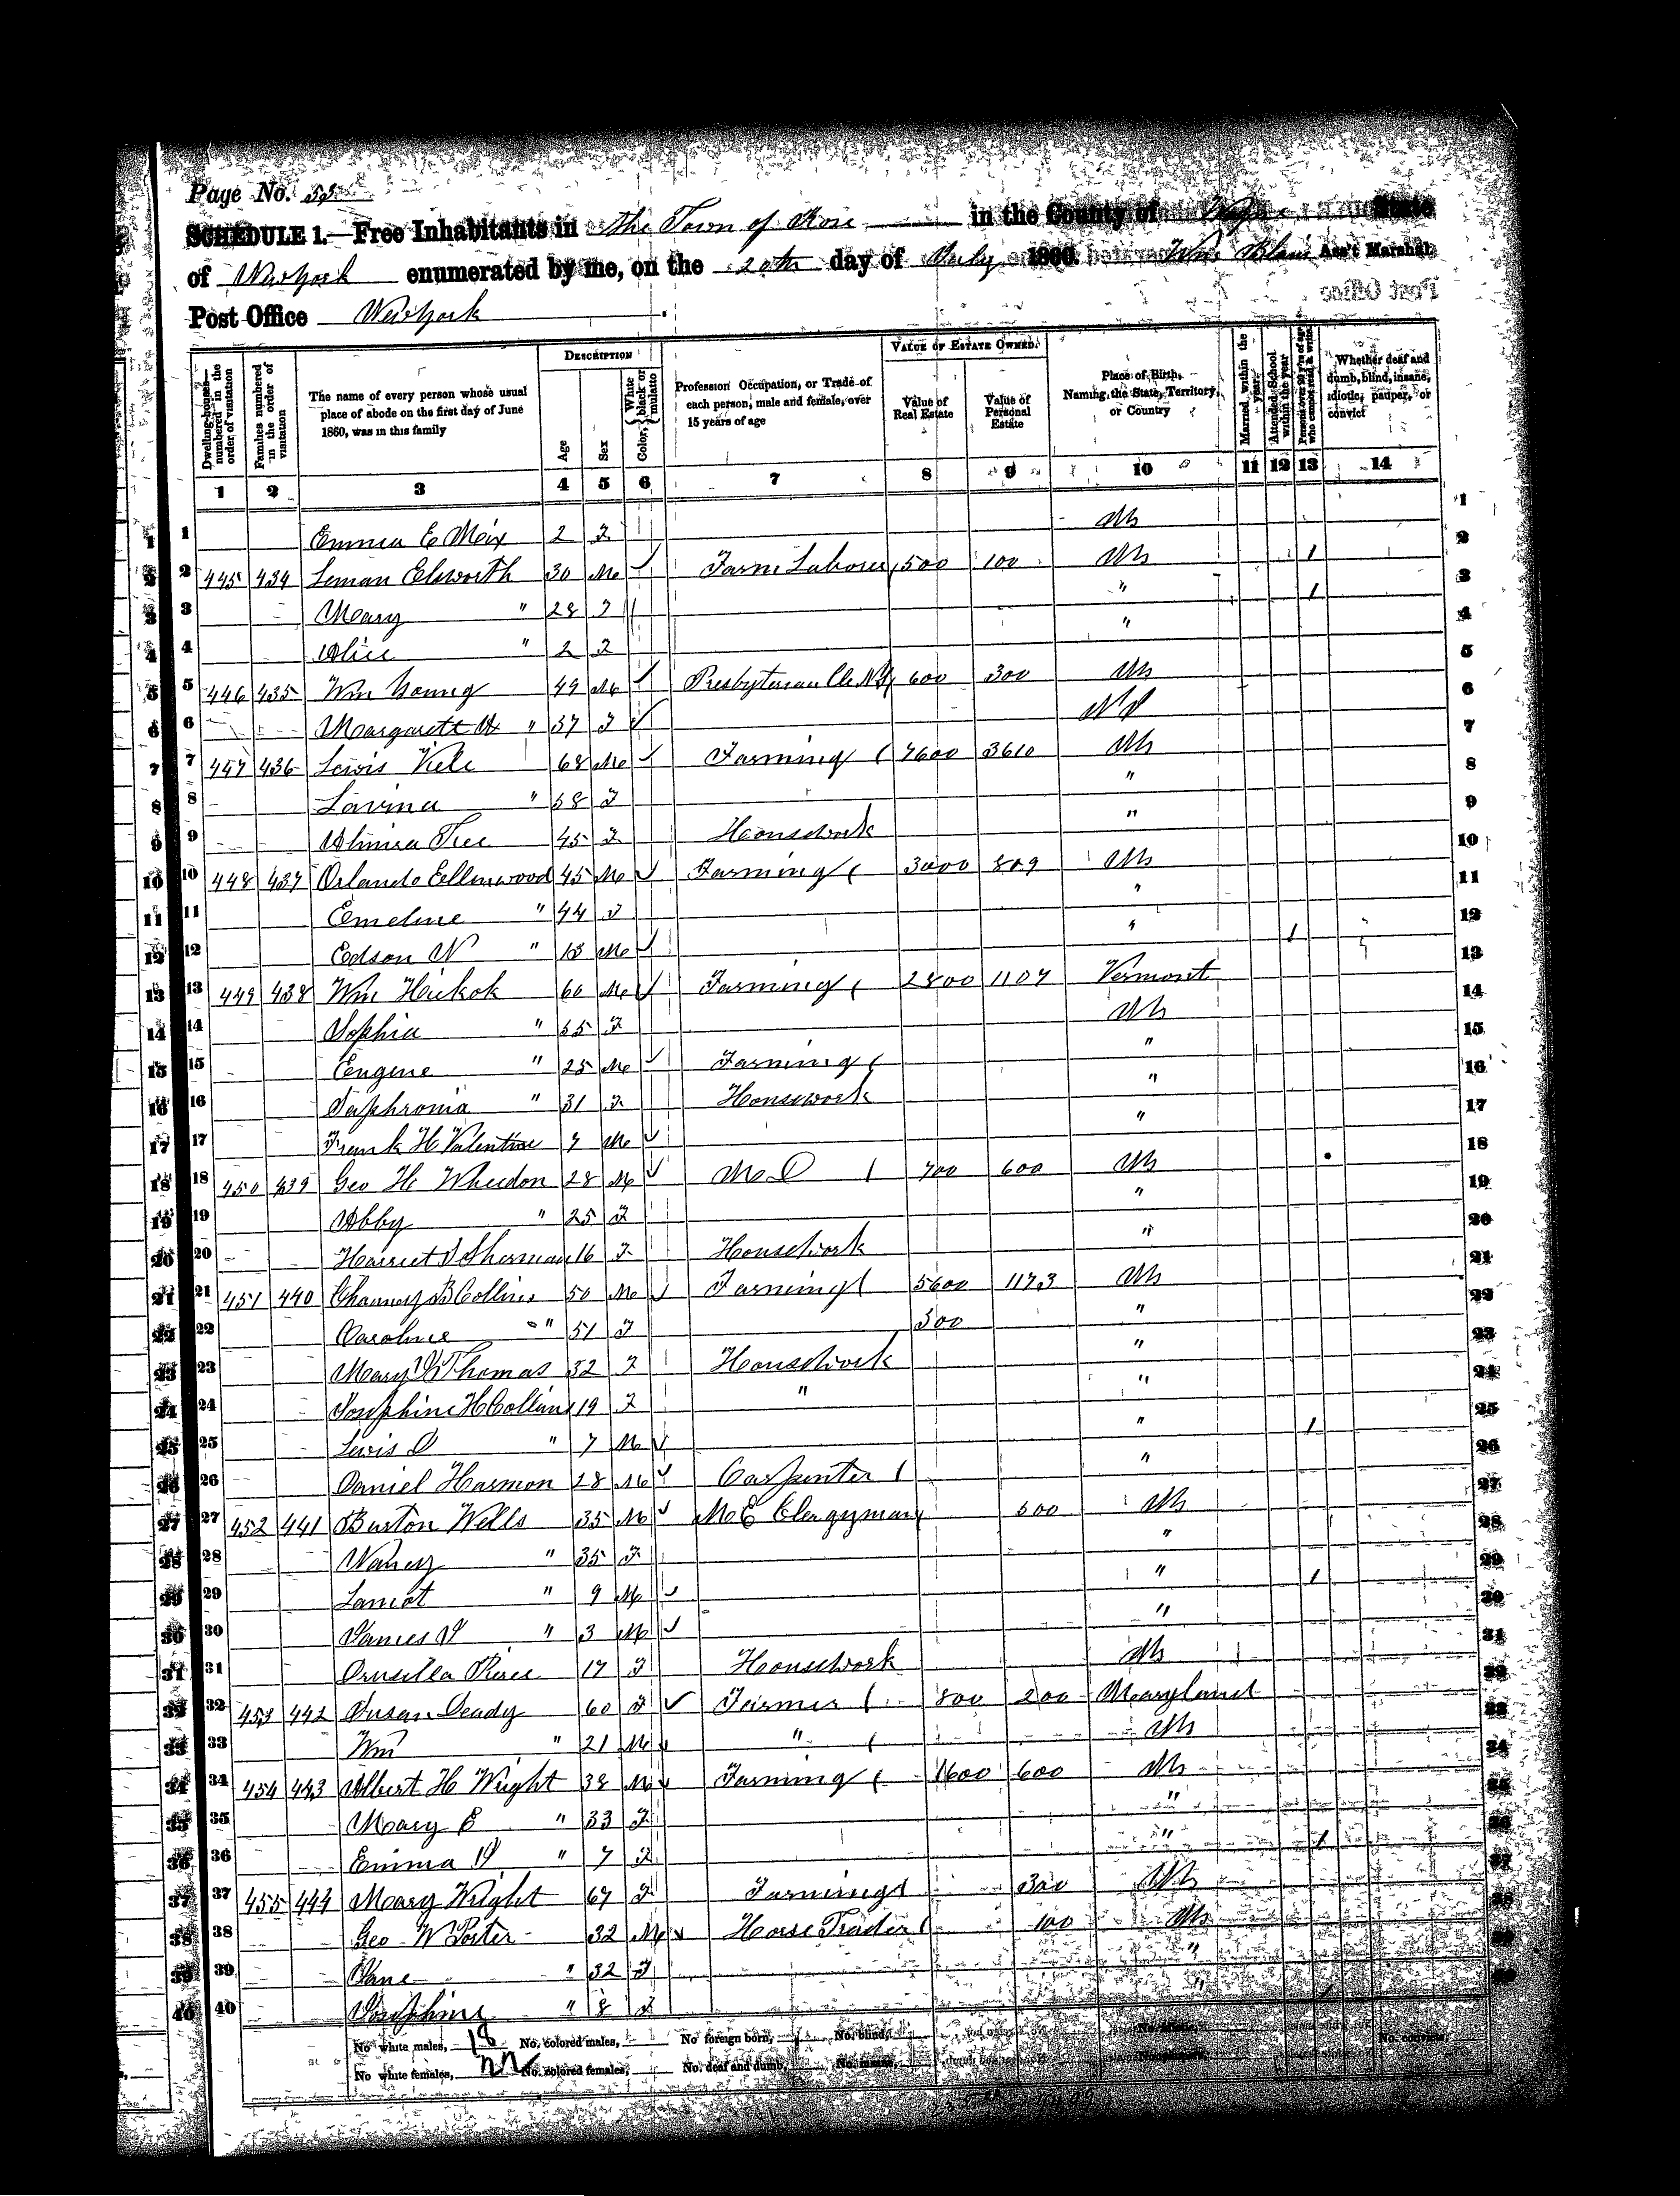 Page No. 55
SCHEDULE 1.—Free Inhabitants in The Town of Rose in the County of Wayne State
of New York enumerated by me, on the 20th day of July 1860. Ass't Marshal.
Post Office New York
Post Office
DESCRIPTION
VALUE OF ESTATE OWNED.
Dwelling-houses—numbered in the order of visitation
Families numbered in the order of visitation
The name of every person whose usual place of abode on the first day of June 1860, was in this family
Age
Sex
Color, White black or mulatto
Profession Occupation, or Trade of each person, male and female, over 15 years of age
Value of Real Estate
Value of Personal Estate
Place of Birth, Naming the State, Territory, or Country
Married within the year
Attended School within the year
Persons over 20 y'rs of age who cannot read & write
Whether deaf and dumb, blind, insane, idiotic, pauper, or convict
1 2 3 4 5 6 7 8 9 10 11 12 13 14
1 Emma E Mix 2 F 1
2 445 434 Leman Elsworth 30 M Farm Laborer 500 100 1 2
3 Mary " 28 F " 1 3
4 Alice " 2 F " 4
5 446 435 Wm Young 49 M Presbyterian 600 300 5
6 Margarett A " 37 F 6
7 447 436 Lewis 68 M Farming 7600 3610 7
8 Lavina " 58 F " 8
9 Almira 45 F Housework " 9
10 448 437 Orlando Ellinwood 45 M Farming 3000 809 10
11 Emeline " 44 F " 11
12 Edson N " 13 M " 1 12
13 449 438 Wm Hickok 60 M Farming 2800 1107 Vermont 13
14 Sophia " 55 F 14
15 Eugene " 25 M Farming " 15
16 Saphronia " 31 F Housework " 16
17 Frank H Valentine 7 M " 17
18 450 439 Geo H Wheedon 28 M M D 700 600 18
19 Abby " 25 F " 19
20 Harriet Sherman 16 F Housework " 20
21 451 440 Chauncy B Collins 50 M Farming 5600 1173 21
22 Caroline " 51 F 500 " 22
23 Mary Thomas 32 F Housework " 23
24 Josephine H Collins 19 F " " 24
25 Lewis D " 7 M " 1 25
26 Daniel Harmon 28 M Carpenter " 26
27 452 441 Burton Wells 35 M M E Clergyman 500 27
28 Nancy " 35 F " 28
29 " 9 M " 1 29
30 James " 3 M " 30
31 Drusilla 17 F Housework 31
32 453 442 Susan Deady 60 F Farmer 800 200 Maryland 32
33 Wm " 21 M " 33
34 454 443 Albert H Wright 38 M Farming 1600 600 34
35 Mary E " 33 F " 35
36 Emma " 7 F " 1 36
37 455 444 Mary Wright 67 F Farming 300 37
38 Geo W Porter 32 M Horse Trader 100 38
39 Jane " 32 F " 39
40 Josephine " 8 F " 40
No white males, 18 No. colored males, No foreign born, No. blind,
No white females, 22 No. colored females, No. deaf and dumb, No. insane, No. convicts,